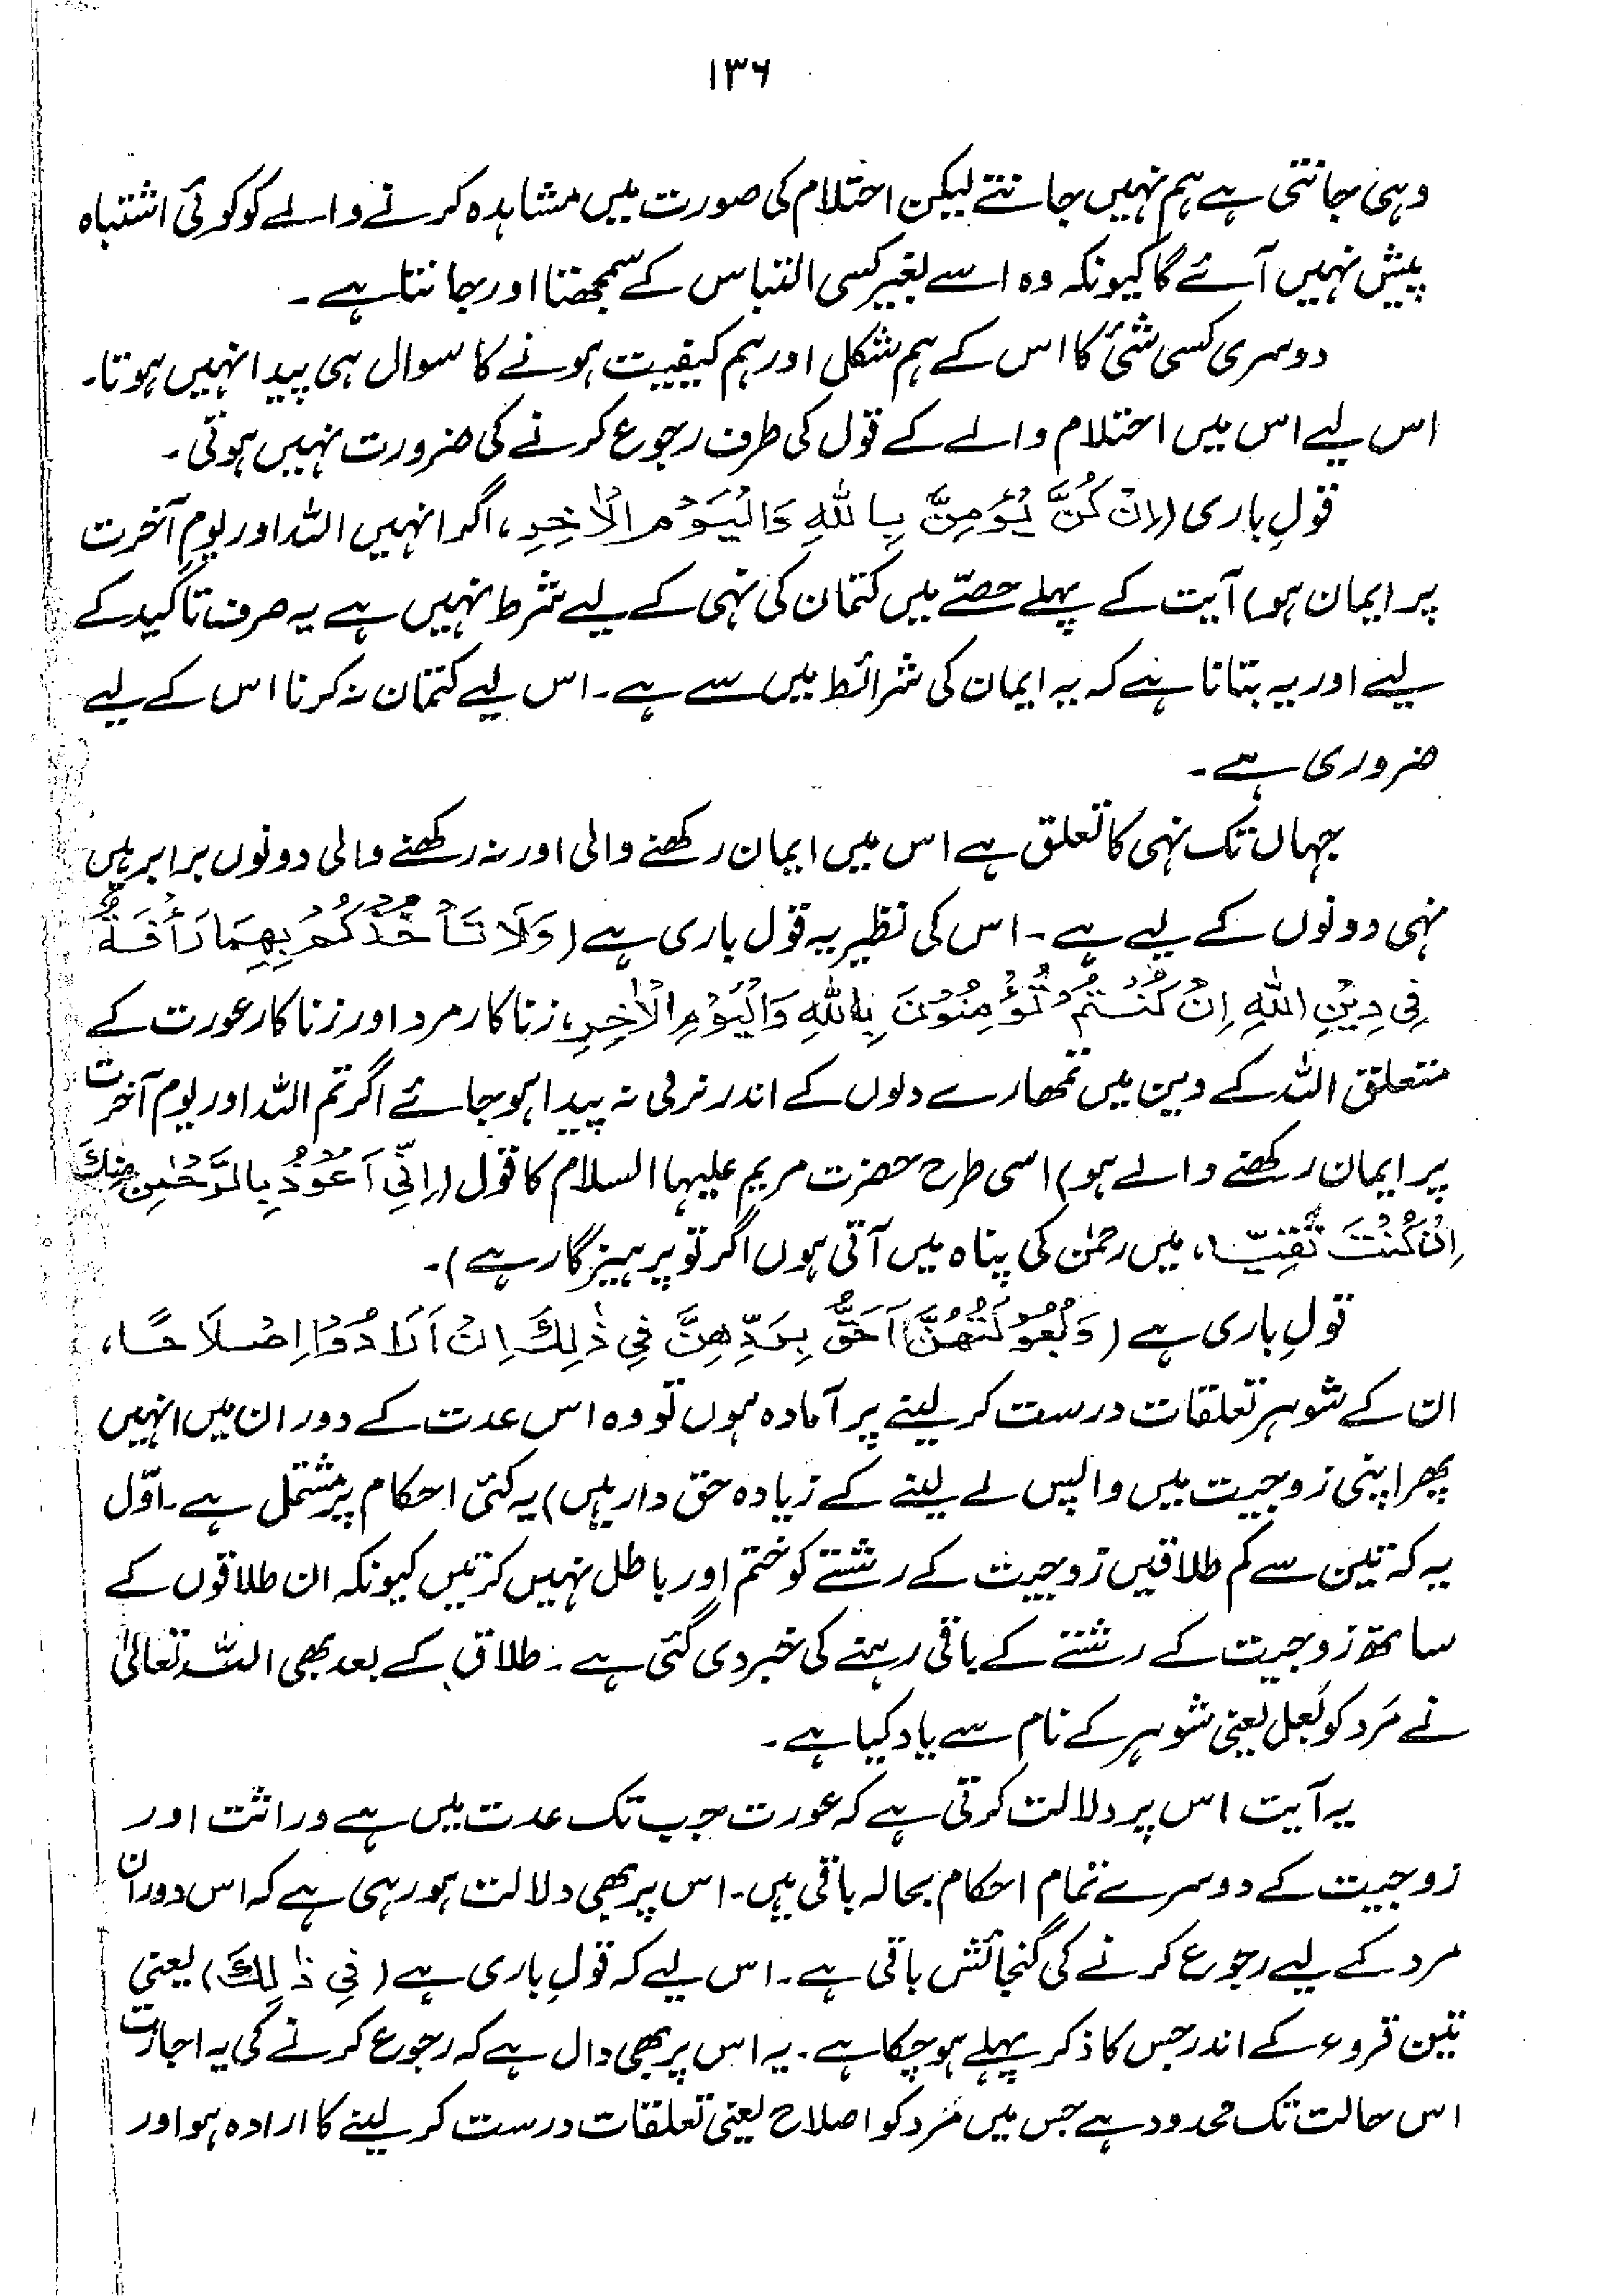 ۱۳۶
وہی جانتی ہے ہم نہیں جانتے لیکن احتلام کی صورت میں مشاہدہ کرنے والے کو کوئی اشتباہ
پیش نہیں آئے گا کیونکہ وہ اسے بغیر کسی التباس کے سمجھتا اور جانتا ہے۔
دوسری کسی شئ کا اس کے ہم شکل اور ہم کیفیت ہونے کا سوال ہی پیدا نہیں ہوتا۔
اس لیے اس میں احتلام والے کے قول کی طرف رجوع کرنے کی ضرورت نہیں ہوتی۔
قولِ باری (اِنْ کُنَّ یُؤْمِنَّ بِاللهِ وَالْیَوْمِ الْاٰخِرِ، اگر انہیں اللہ اور یومِ آخرت
پر ایمان ہو) آیت کے پہلے حصّے میں کتمان کی نہی کے لیے شرط نہیں ہے یہ صرف تاکید کے
لیے اور یہ بتانا ہے کہ یہ ایمان کی شرائط میں سے ہے۔ اس لیے کتمان نہ کرنا اس کے لیے
ضروری ہے۔
جہاں تک نہی کا تعلق ہے اس میں ایمان رکھنے والی اور نہ رکھنے والی دونوں برابر ہیں
نہی دونوں کے لیے ہے۔ اس کی نظیر یہ قول باری ہے (وَلَا تَأْخُذْکُمْ بِهِمَا رَأْفَةٌ
فِی دِیْنِ اللهِ اِنْ کُنْتُمْ تُؤْمِنُوْنَ بِاللهِ وَالْیَوْمِ الْاٰخِرِ، زنا کار مرد اور زنا کار عورت کے
متعلق اللہ کے دین میں تمھارے دلوں کے اندر نرمی نہ پیدا ہو جائے اگر تم اللہ اور یوم آخرت
پر ایمان رکھنے والے ہو) اسی طرح حضرت مریم علیہا السلام کا قول (اِنِّی اَعُوْذُ بِالرَّحْمٰنِ مِنْكَ
اِنْ کُنْتَ تَقِیًّا، میں رحمٰن کی پناہ میں آتی ہوں اگر تو پرہیزگار ہے)۔
قولِ باری ہے (وَبُعُوْلَتُهُنَّ اَحَقُّ بِرَدِّهِنَّ فِی ذٰلِكَ اِنْ اَرَادُوْا اِصْلَاحًا،
ان کے شوہر تعلقات درست کر لینے پر آمادہ ہوں تو وہ اس عدت کے دوران میں انہیں
پھر اپنی زوجیت میں واپس لے لینے کے زیادہ حق دار ہیں) یہ کئی احکام پر مشتمل ہے۔ اوّل
یہ کہ تین سے کم طلاقیں زوجیت کے رشتے کو ختم اور باطل نہیں کرتیں کیونکہ ان طلاقوں کے
ساتھ زوجیت کے رشتے کے باقی رہنے کی خبر دی گئی ہے۔ طلاق کے بعد بھی اللہ تعالیٰ
نے مَرد کو بَعل یعنی شوہر کے نام سے یاد کیا ہے۔
یہ آیت اس پر دلالت کرتی ہے کہ عورت جب تک عدت میں ہے وراثت اور
زوجیت کے دوسرے تمام احکام بحالہ باقی ہیں۔ اس پر بھی دلالت ہو رہی ہے کہ اس دوران
مرد کے لیے رجوع کرنے کی گنجائش باقی ہے۔ اس لیے کہ قولِ باری ہے (فِی ذٰلِكَ) یعنی
تین قروء کے اندر جس کا ذکر پہلے ہو چکا ہے۔ یہ اس پر بھی دال ہے کہ رجوع کرنے کی یہ اجازت
اس حالت تک محدود ہے جس میں مَرد کو اصلاح یعنی تعلقات درست کر لینے کا ارادہ ہو اور